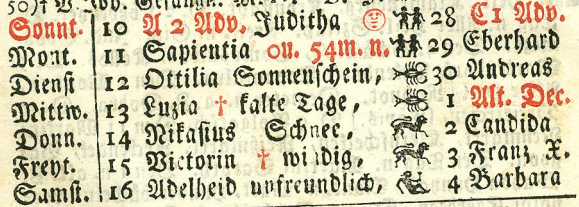 Sonnt. 10 A 2 Adv. Juditha 28 C1 Adv.
Mont. 11 Sapientia ou. 54m. n. 29 Eberhard
Dienst 12 Ottilia Sonnenschein, 30 Andreas
Mittw. 13 Luzia † kalte Tage, 1 Alt. Dec.
Donn. 14 Nikasius Schnee, 2 Candida
Freyt. 15 Victorin † windig, 3 Franz X.
Samst. 16 Adelheid unfreundlich, 4 Barbara